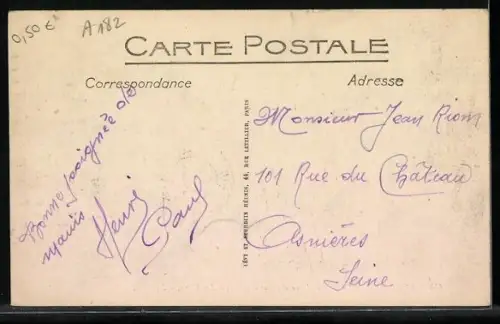 0,50 €
A 182
CARTE POSTALE
Correspondance
Adresse
Bonne poignée de
mains
Henri
Paul
LÉVY ET NEURDEIN RÉUNIS, 44, RUE LETELLIER, PARIS
Monsieur Jean Riom
101 Rue du Château
Asnières
Seine